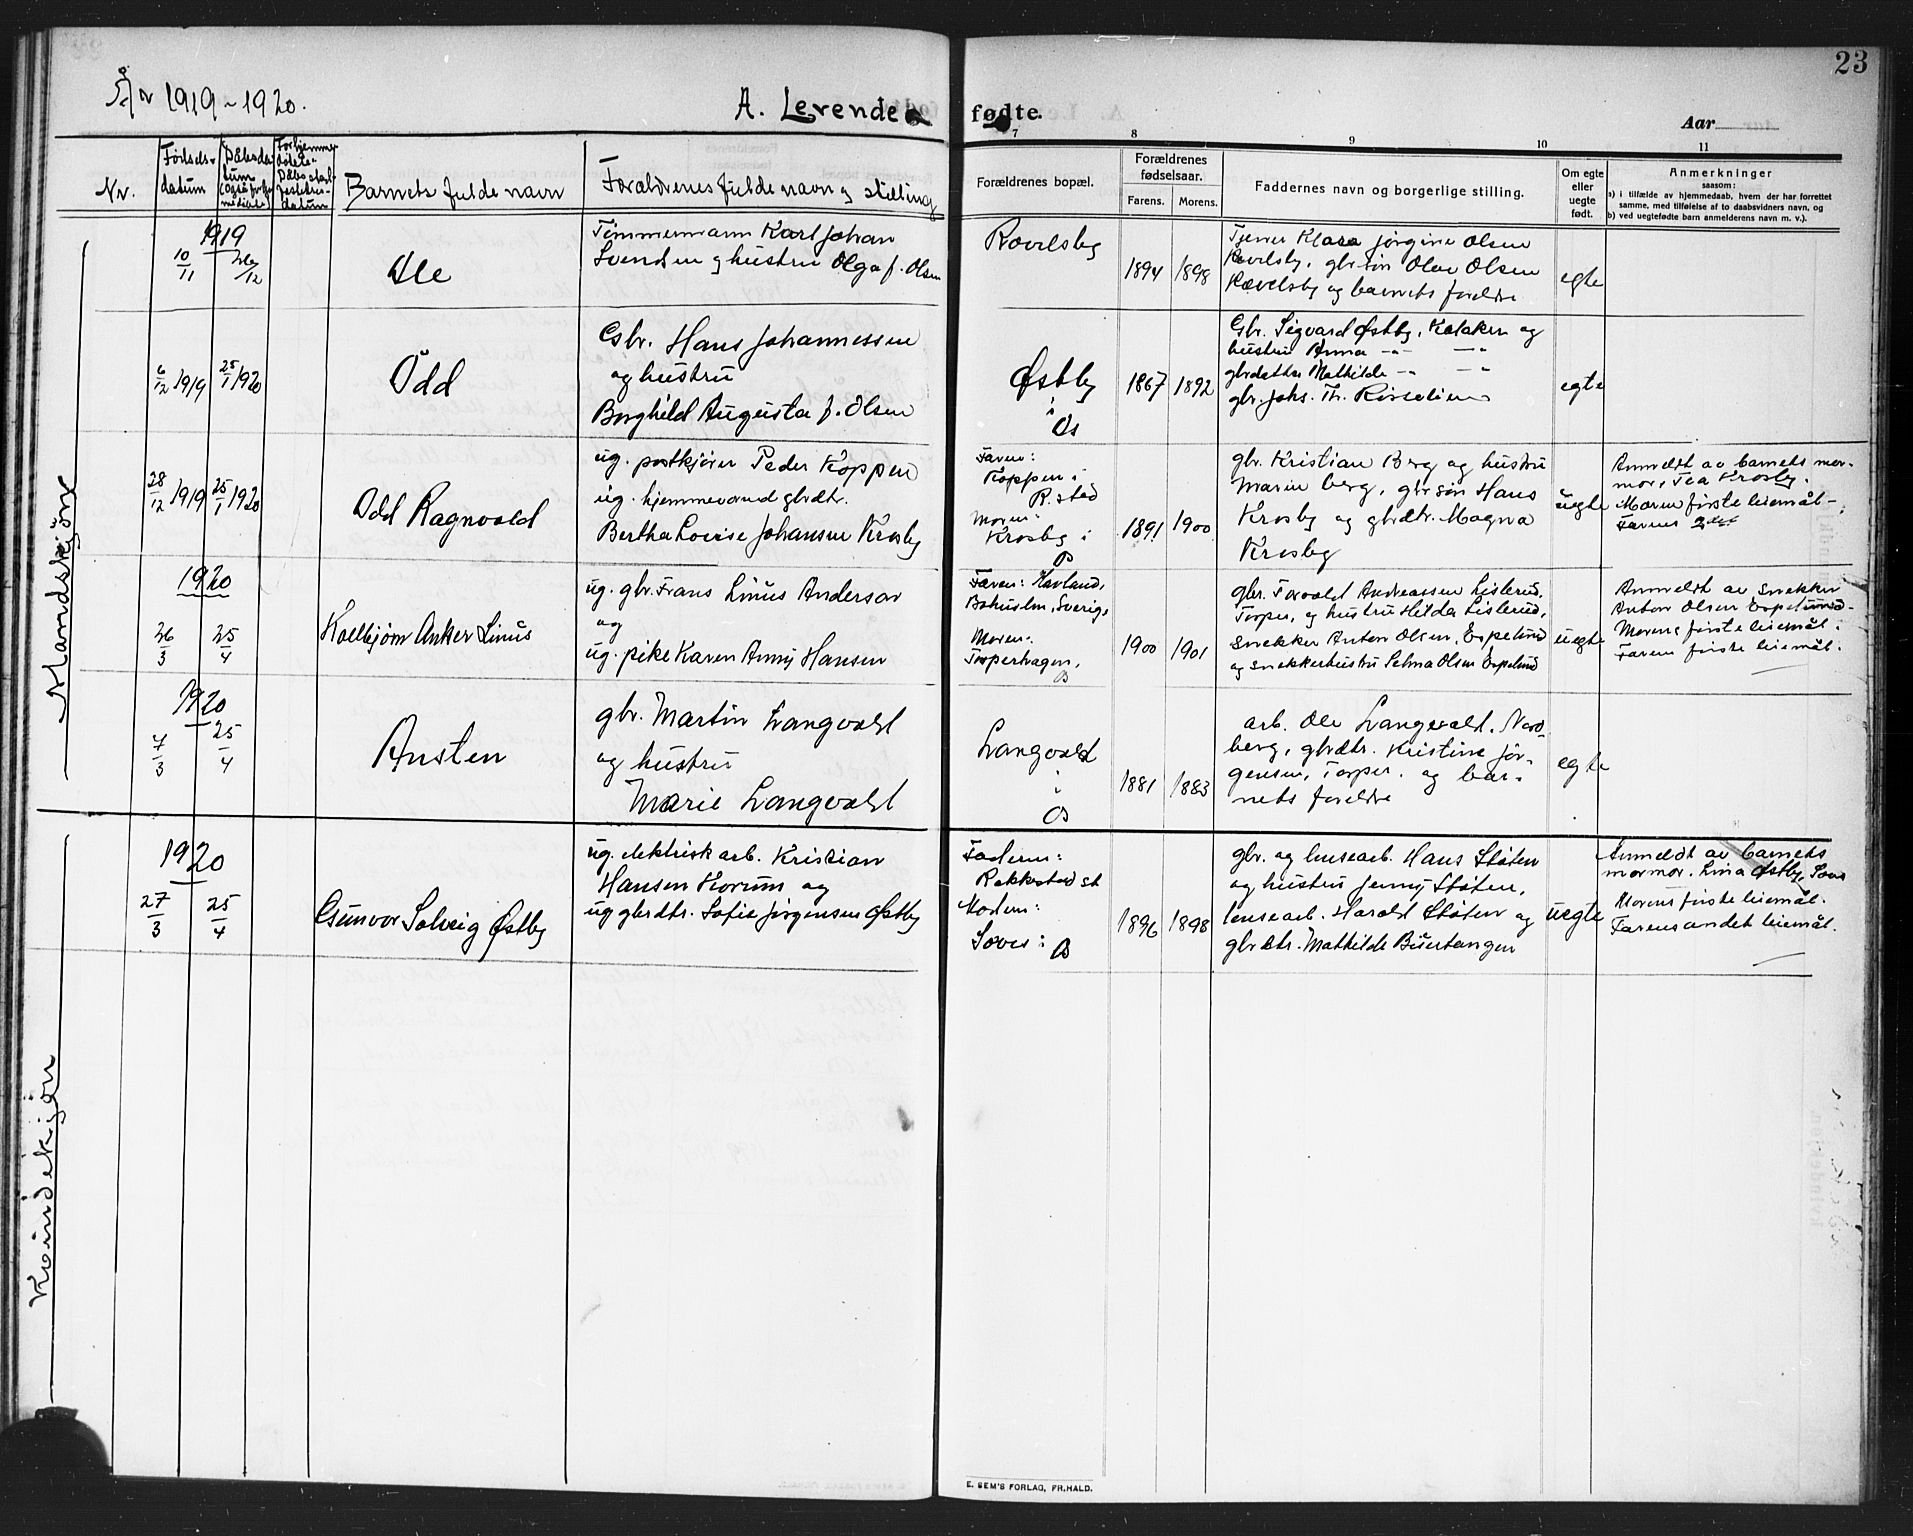 23
År 1919-1920.
A. Levende
fødte.
Aar
7 8 9 10 11
Nr.
Fødsels-
datum
Barnets fulde navn
Forældrenes fulde navn og stilling
Forældrenes bopæl.
Forældrenes
fødselsaar.
Farens. Morens.
Faddernes navn og borgerlige stilling.
Om egte
eller
uegte
født.
Anmerkninger
saasom:
a) i tilfælde av hjemmedaab, hvem der har forrettet
samme, med tilføielse af to daabsvidners navn, og
b) ved uegtefødte barn anmelderens navn m. v.).
Mandskjøn
1919
10/11 26/12
Ole
Tømmermann Karl Johan
Svendsen og hustru Olga f. Olsen
Rovelsby
1894 1898
Tjener Klara Jørgine Olsen
gbr.søn Olav Olsen
og barnets foreldre
egte
6/12 1919 25/1 1920
Odd
Gbr. Hans Johannessen
og hustru
Borghild Augusta f. Olsen
Østby
i
Os
1867 1892
Gbr. Sigvard Østby, Kolaker og
hustru Anna -"- -"-
gbrdatter Mathilde -"- -"-
gbr. Johs. Th.
egte
28/12 1919 25/1 1920
Odd Ragnvald
ug. postkjører Peder Koppen
ug. hjemmevænd gbrdtr.
Bertha Lovise Johansen Krosby
Faren:
Koppen i
R.stad
Moren:
Krosby i
Os
1891 1900
gbr. Kristian Berg og hustru
Marin Berg, gbr søn Hans
Krosby og gbrdtr. Magna
Krosby
uegte
Anmeldt av barnets mor-
mor, Tea Krosby.
Moren første leiemål -,
Farens 2det
1920
26/3 25/4
Kolbjørn Anker Linus
ug. gbr. Frans Linus Anderson
og
ug. pike Karen Anny Hansen
Faren: Havland,
Bohuslen, Sverige
Moren:
Torperhagen,
Os
1900 1901
gbr. Torvald Andreassen Lislerud,
Torper, og hustru Hilda Lislerud,
snekker Anton Olsen, Espelund
og snekkerhustru Selma Olsen Espelund
uegte
Anmeldt av snekker
Anton Olsen Espelund -
Morens første leiemål.
Farens første leiemål.
1920
7/3 25/4
Austen
gbr. Martin Langvold
og hustru
Marie Langvold
Langvold
i
Os
1881 1883
arb. Ole Langvold, Nord-
berg, gbrdtr. Kristine Jør-
gensen, Torper, og bar-
nets foreldre
egte
Kvindekjøn
1920
27/3 25/4
Gunvor Solveig Østby
ug. elektrisk arb. Kristian
Hansen Korum og
ug gbrdtr. Sofie Jørgensen Østby
Faderen:
Rakkestad st
Moderen:
Os
1896 1898
gbr. og lensearb. Hans Støten
og hustru Jenny Støten,
lensearb. Harald Støten og
gbrdtr. Mathilde Buertangen
uegte
Anmeldt av barnets
mormor. Lina Østby,
Morens første leiemål.
Farens andet leiemål.
E. SEM'S FORLAG, FR.HALD.